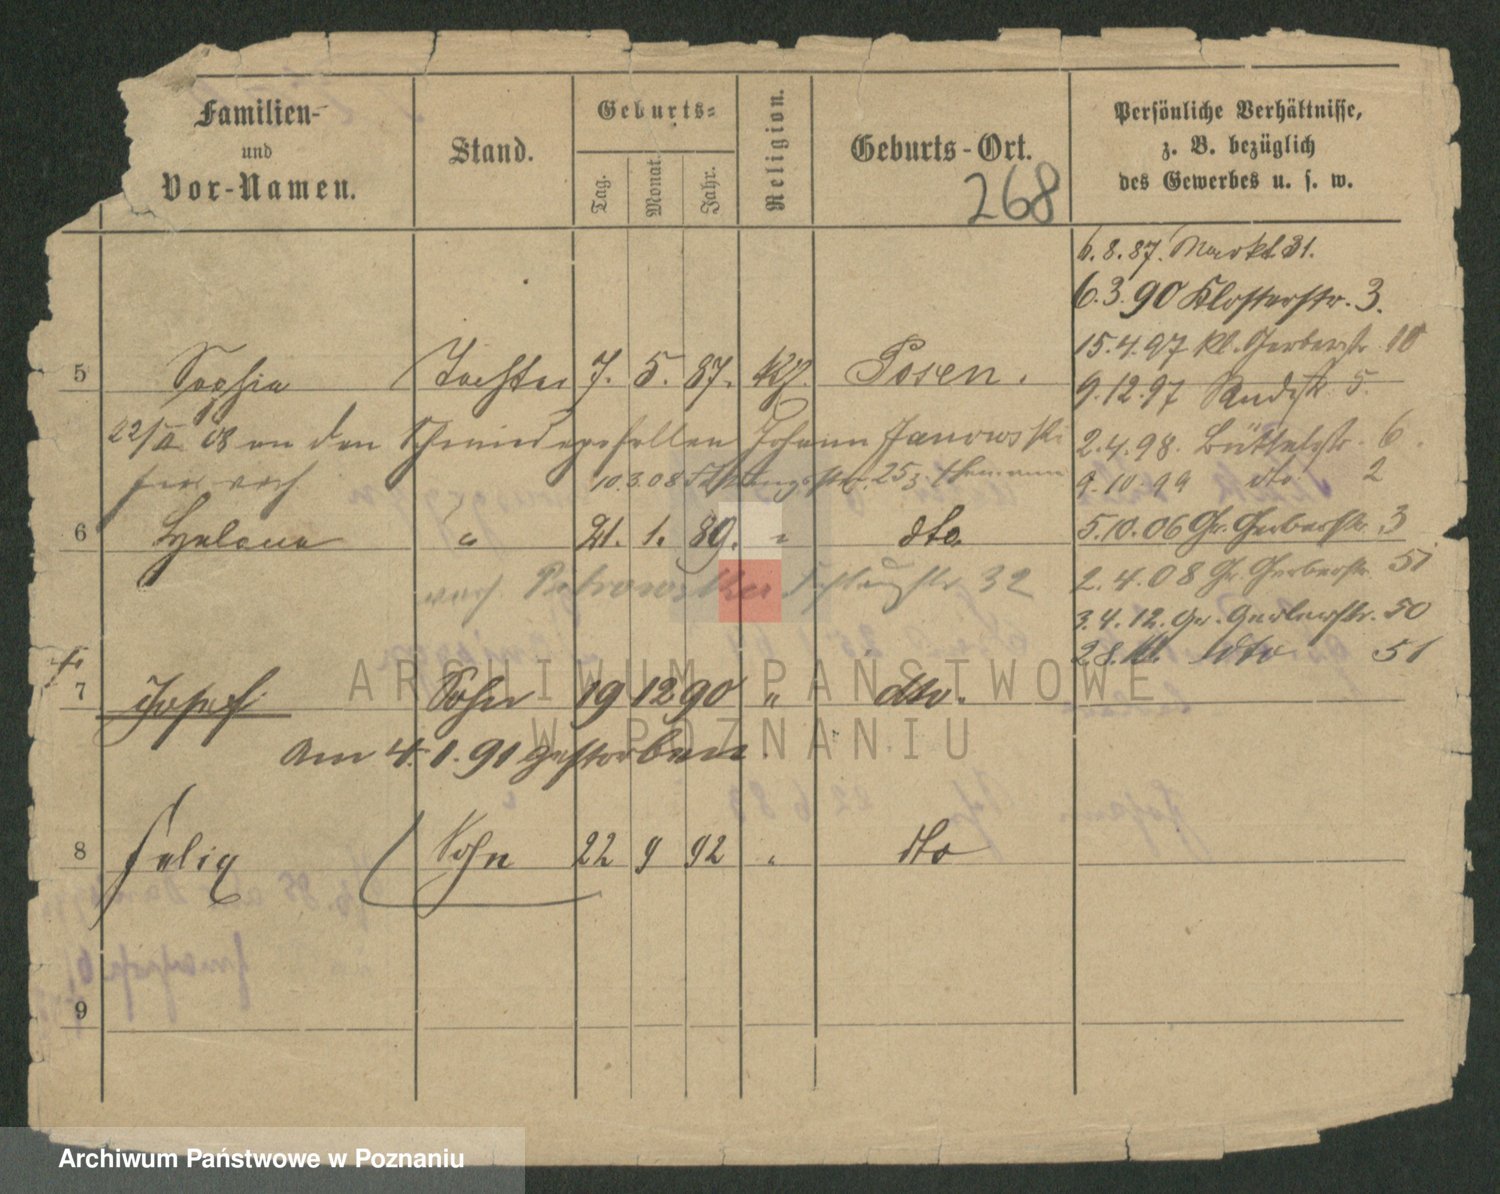 Familien-
und
Vor-Namen.
Stand.
Geburts-
Tag.
Monat.
Jahr.
Religion.
Geburts-Ort.
268
Persönliche Verhältnisse,
z. B. bezüglich
des Gewerbes u. s. w.
6.8.87. Markt 31.
6.3.90 Klosterstr. 3.
15.4.97 kl. Gerberstr. 10
9.12.97 5.
2.4.98. Büttelstr. 6.
9.10.99 dto 2
5.10.06 Gr. Gerberstr. 3
2.4.08 Gr. Gerberstr. 51
3.4.12. Gr. Gerberstr. 50
dto 51
5 Sophia Tochter 7. 5. 87. kth. Posen.
22/ 08 an den Schmiedegesellen Johann Janowski
10.3.08
6 Helena " 21. 1. 89. " dto
32
7 Josef Sohn 19 12 90 " dto.
Am 4.1.91 gestorben.
8 Felix Sohn 22 9 92 " dto
9
ARCHIWUM PAŃSTWOWE
W POZNANIU
Archiwum Państwowe w Poznaniu